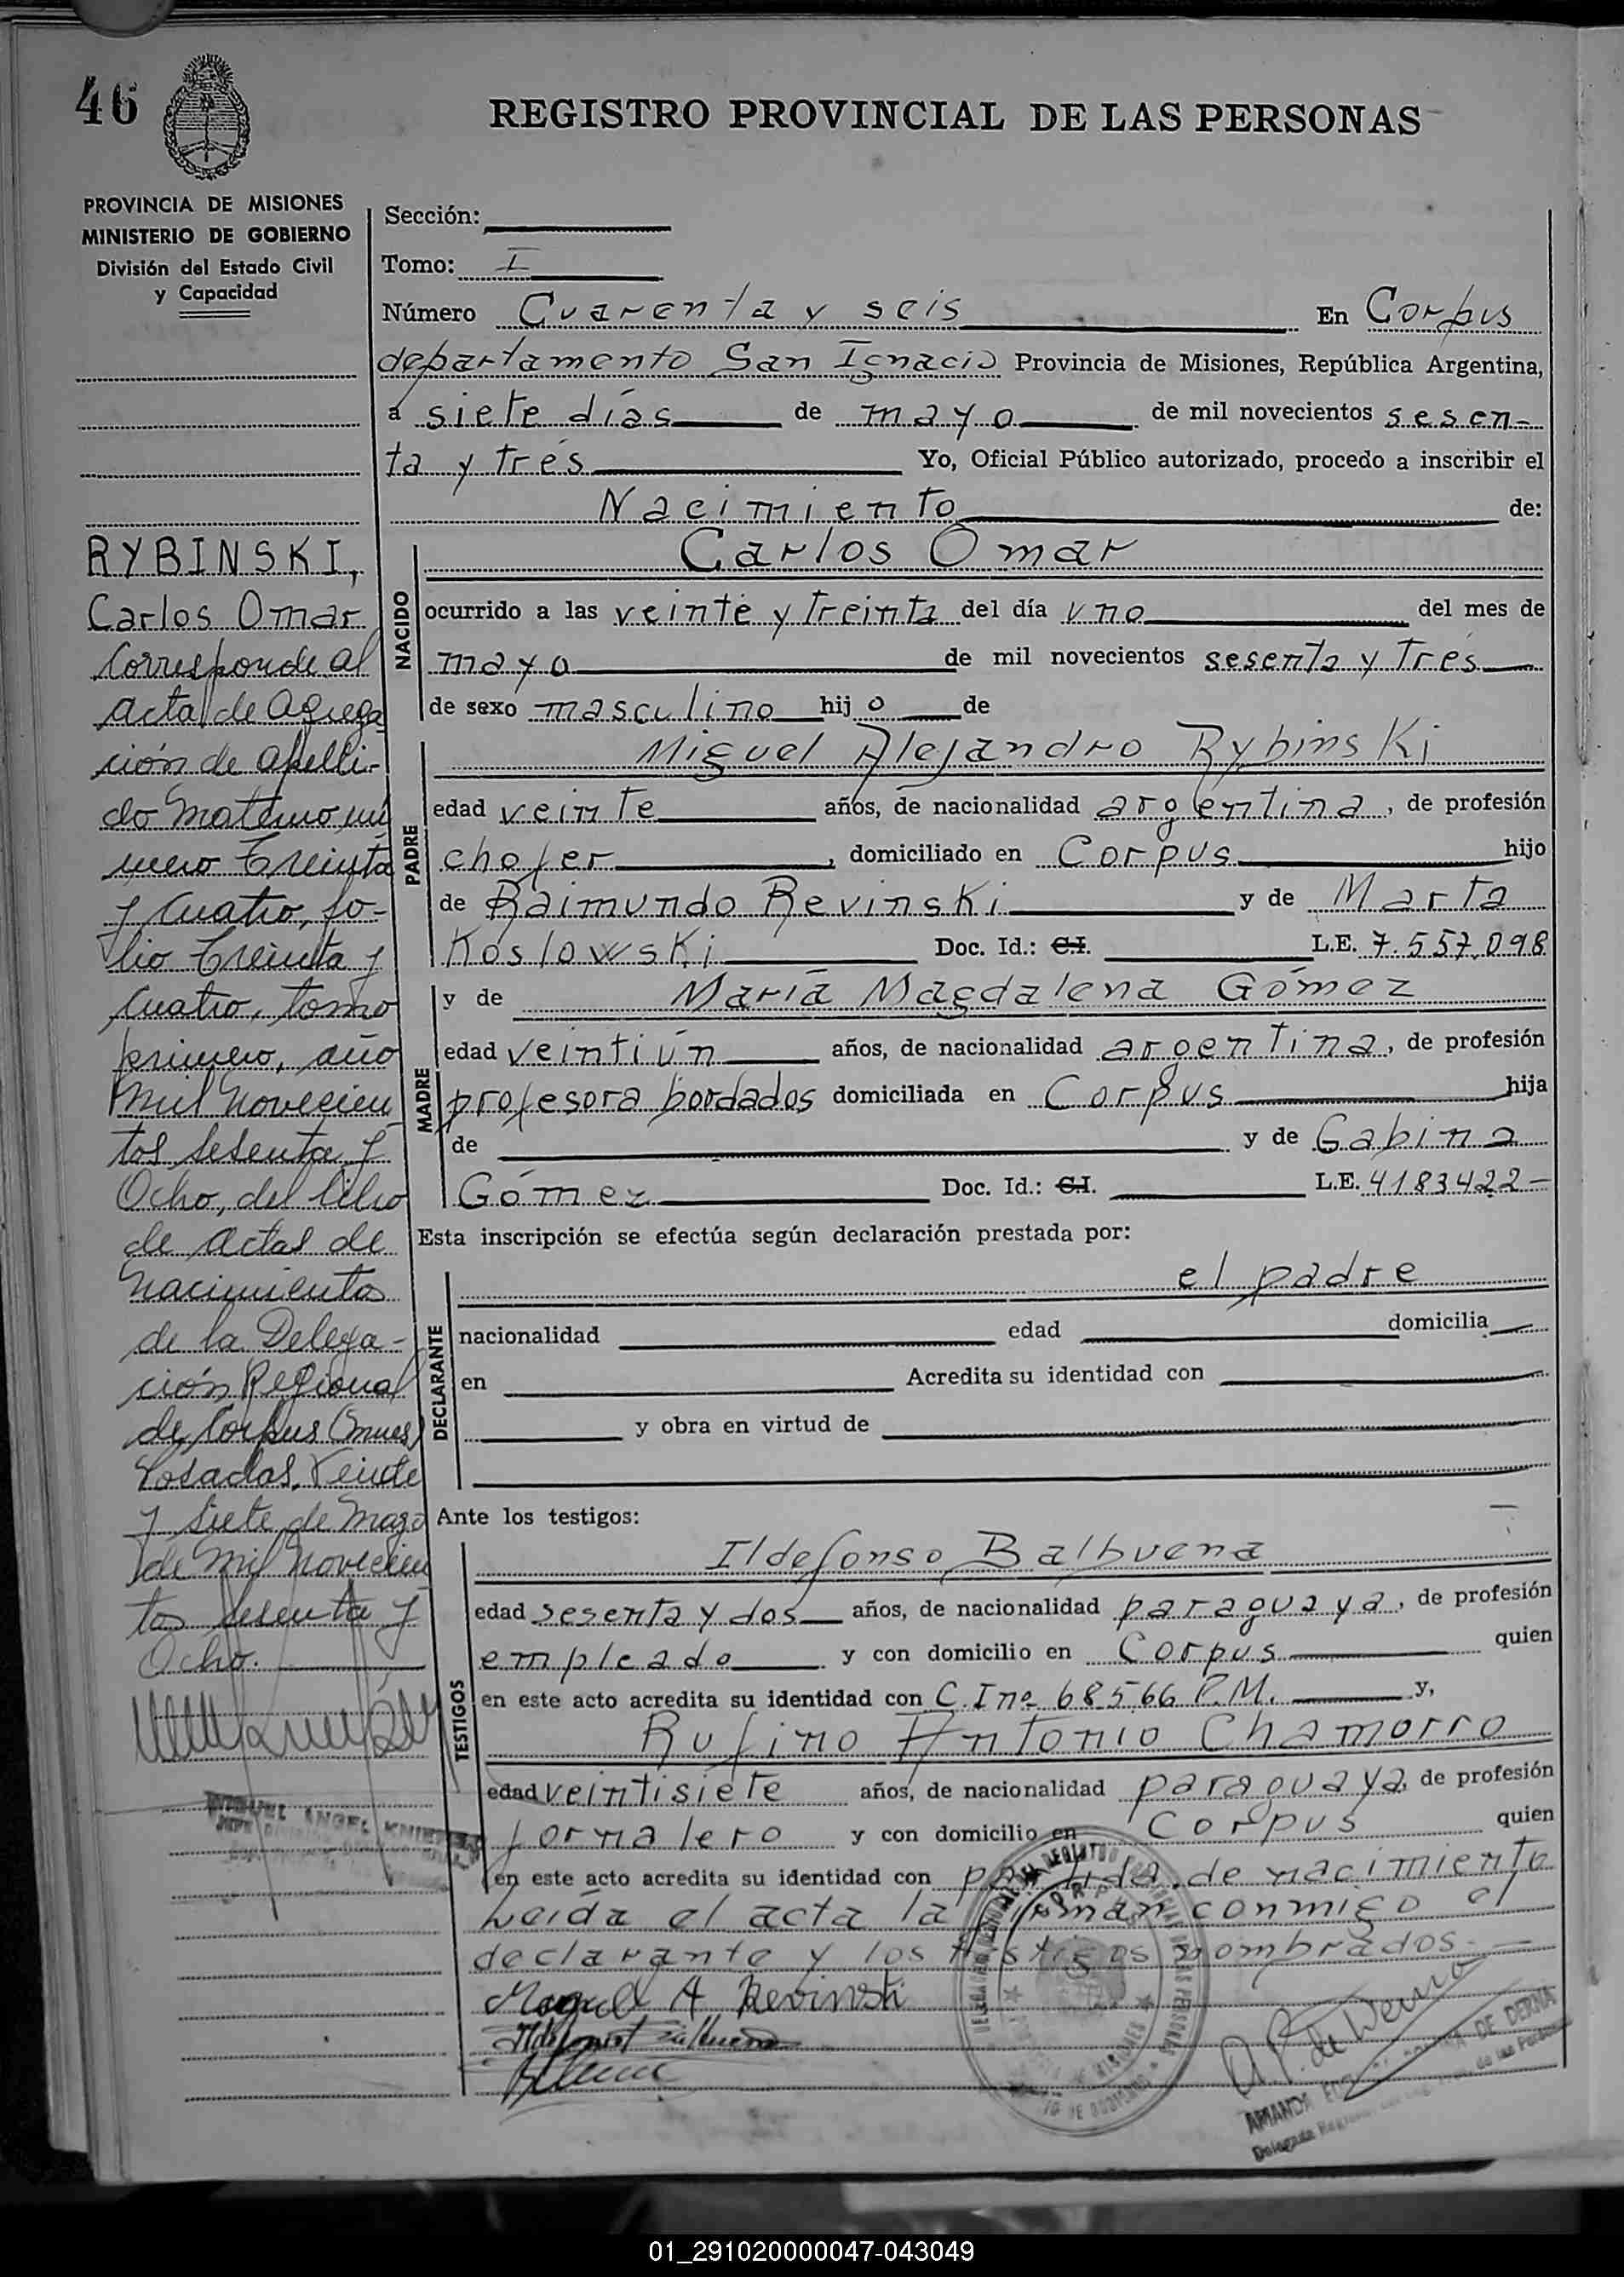 46
REGISTRO PROVINCIAL DE LAS PERSONAS
PROVINCIA DE MISIONES
MINISTERIO DE GOBIERNO
División del Estado Civil
y Capacidad
Sección:
Tomo: I
Número Cuarenta y seis En Corpus
departamento San Ignacio Provincia de Misiones, República Argentina,
a siete días de mayo de mil novecientos sesen-
ta y tres Yo, Oficial Público autorizado, procedo a inscribir el
Nacimiento de:
RYBINSKI,
Carlos Omar
Corresponde al
acta de agrega
ción de apelli-
do materno nú
mero treinta
y cuatro, fo-
lio treinta y
cuatro, tomo
primero, año
mil novecien
tos sesenta y
Ocho, del libro
de actas de
nacimientos
de la Delega-
ción Regional
de Corpus (Mnes)
Posadas, Veinte
y siete de Mayo
de mil novecien
tos sesenta y
Ocho.
MIGUEL ANGEL
NACIDO
Carlos Omar
ocurrido a las veinte y treinta del día uno del mes de
mayo de mil novecientos sesenta y tres
de sexo masculino hijo de
PADRE
Miguel Alejandro Rybinski
edad veinte años, de nacionalidad argentina, de profesión
chofer, domiciliado en Corpus hijo
de Raimundo Revinski y de Marta
Koslowski Doc. Id.: C.I. L.E. 7.557.098
MADRE
y de María Magdalena Gómez
edad veintiún años, de nacionalidad argentina, de profesión
profesora bordados domiciliada en Corpus hija
de y de Gabina
Gómez Doc. Id.: C.I. L.E. 4183422-
Esta inscripción se efectúa según declaración prestada por:
DECLARANTE
el padre
nacionalidad edad domicilia
en Acredita su identidad con
y obra en virtud de
Ante los testigos:
TESTIGOS
Ildefonso Balbuena
edad sesenta y dos años, de nacionalidad paraguaya, de profesión
empleado y con domicilio en Corpus quien
en este acto acredita su identidad con C.I nº 68566 P.M. y,
Rufino Antonio Chamorro
edad veintisiete años, de nacionalidad paraguaya, de profesión
jornalero y con domicilio en Corpus quien
en este acto acredita su identidad con partida de nacimiento
Leída el acta la firman conmigo el
declarante y los testigos nombrados.-
Miguel A Revinski
Ildefonso Balbuena
A.P. de Derna
AMANDA DE DERNA
Delegada
CORPUS
01_291020000047-043049